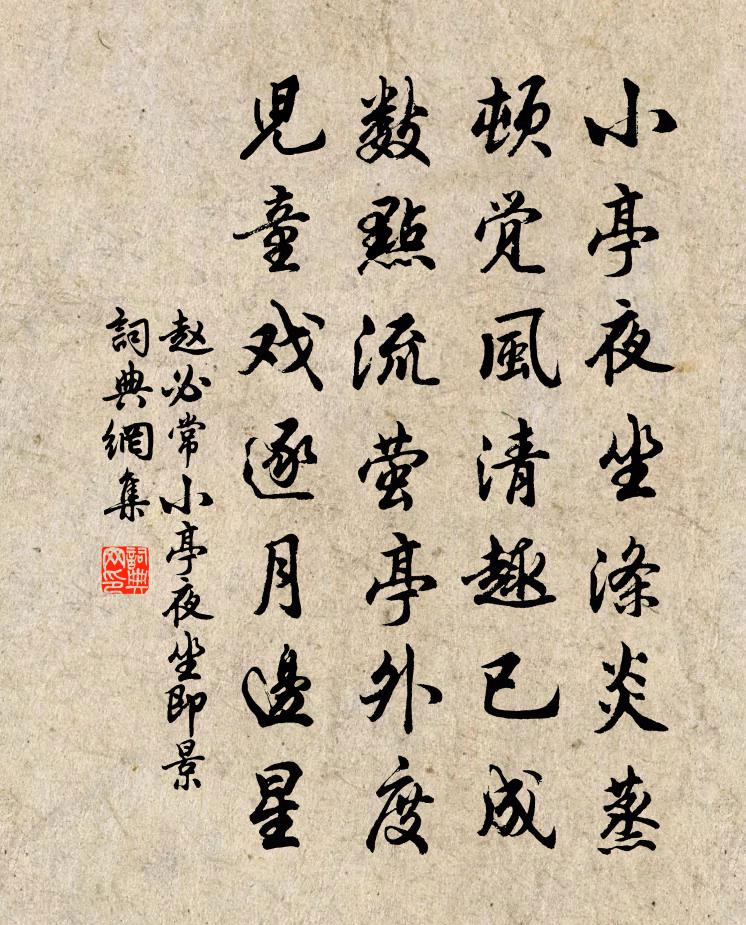 小亭夜坐滌炎蒸
頓覺風清趣已成
數點流萤亭外度
兒童戏逐月邊星
赵必常小亭夜坐即景
詞典網集
詞典网印